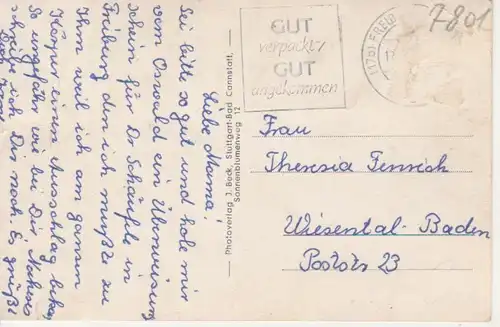 Liebe Mama!
Sei bitte so gut und hole mir
vom Oswald ein Überweisungs
schein für Dr Schäufele in
Freiburg denn ich mußte zu
Ihm weil ich am ganzen
Körper einen Ausschlag bekam
So ungefähr wie bei Dir Näheres
schreibe ich Dir noch. Es grüßt
Photoverlag J. Beck, Stuttgart-Bad Cannstatt,
Sonnenblumenweg 12
GUT
verpackt/
GUT
angekommen
(17b) FREIB
7801
Frau
Theresia Fenrich
Wiesental-Baden
Poststr 23